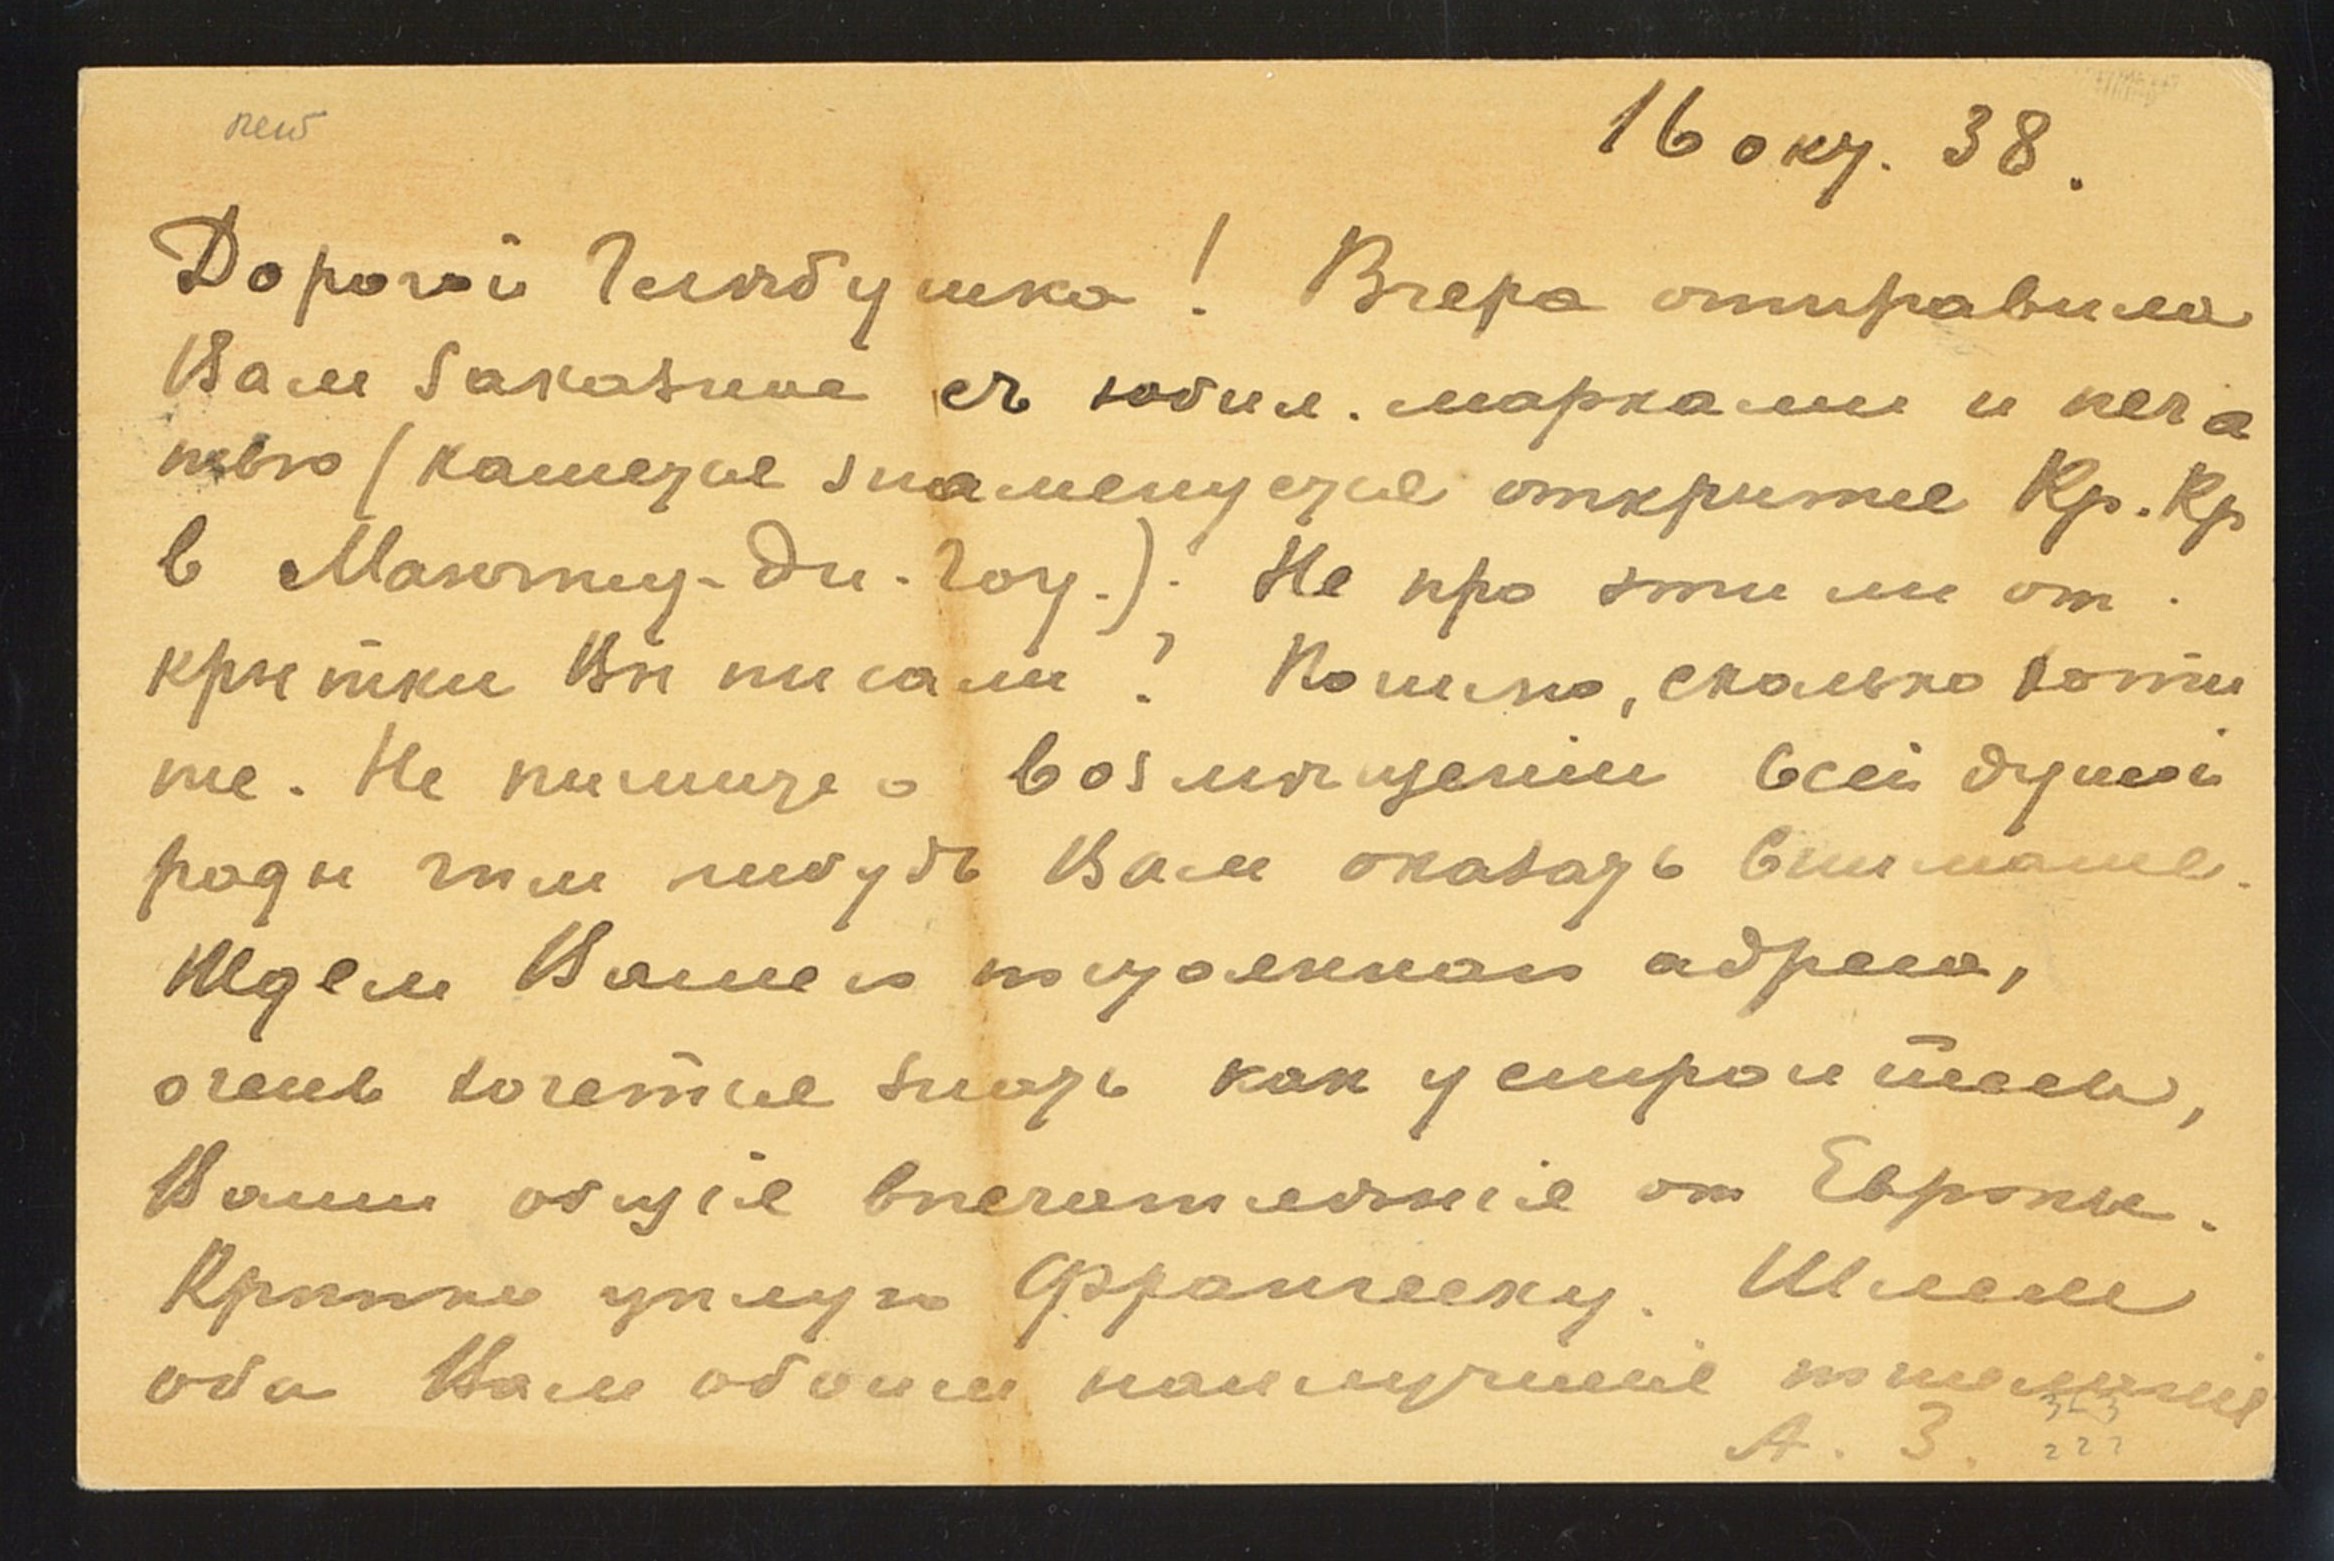 new
16 окт. 38.
Дорогой Глѣбушка! Вчера отправила
Вам заказное съ юбил. марками и печа
тью (кажется знаменуется открытие Кр. Кр
в Манчжу-Ди-Го). Не про эти ли от-
крытки Вы писали? Пошлю, сколько хоти
те. Не пишите о возмѣщеніи всей душой
рады чѣм нибудь Вам оказать внимание.
Ждем Вашего постояннаго адреса,
очень хочется знать как устроитесь,
Ваши общіе впечатлѣніе от Европы.
Крѣпко цѣлую Франческу. Шлем
оба Вам обоим наилучшіе пожеланіе
А. З.